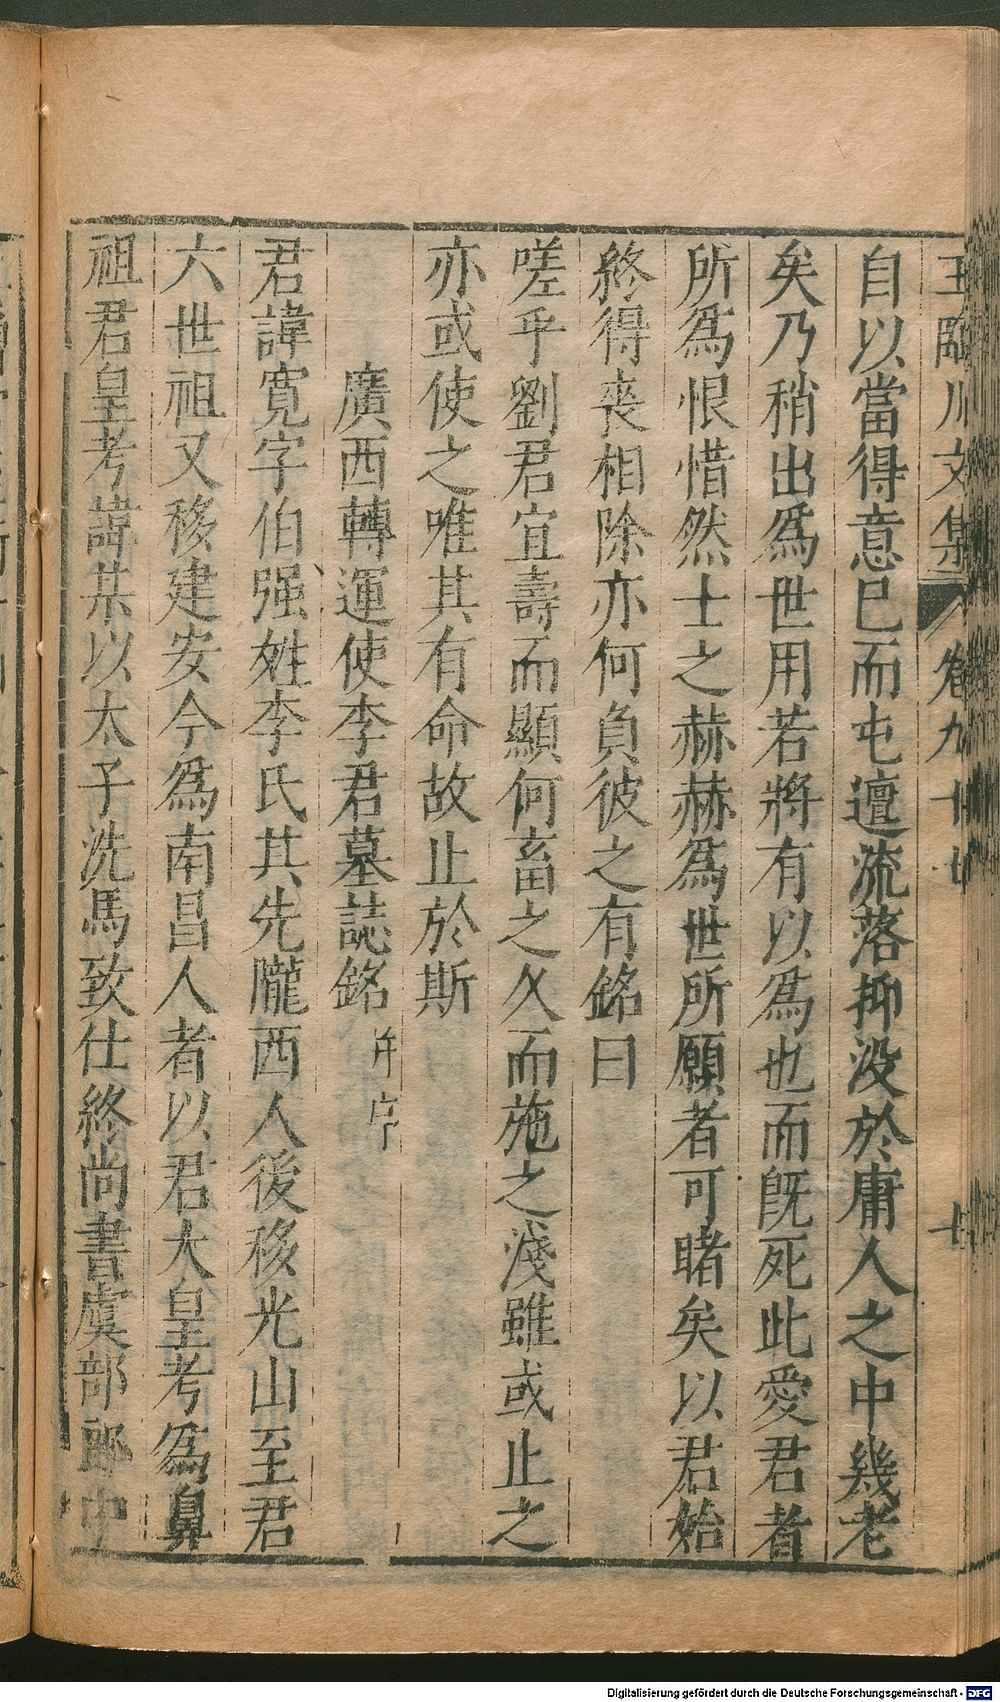 王臨川文集 卷九十七 十
自以當得意已而屯邅流落抑没於庸人之中幾老
矣乃稍出爲世用若將有以爲也而既死此愛君者
所爲恨惜然士之赫赫爲世所願者可睹矣以君始
終得喪相除亦何負彼之有銘曰
嗟乎劉君宜壽而顯何畜之久而施之淺雖或止之
亦或使之唯其有命故止於斯
廣西轉運使李君墓誌銘并序
君諱寬字伯强姓李氏其先隴西人後移光山至君
六世祖又移建安今爲南昌人者以君大皇考爲鼻
祖君皇考諱某以太子洗馬致仕終尚書虞部郎中
Digitalisierung gefördert durch die Deutsche Forschungsgemeinschaft - DFG